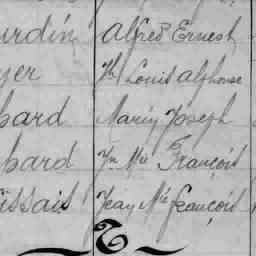 urdin Alfred Ernest
yer Louis Alphonse
bard Marie Joseph
bard Vn Mie François
issais Jean Mie François
T